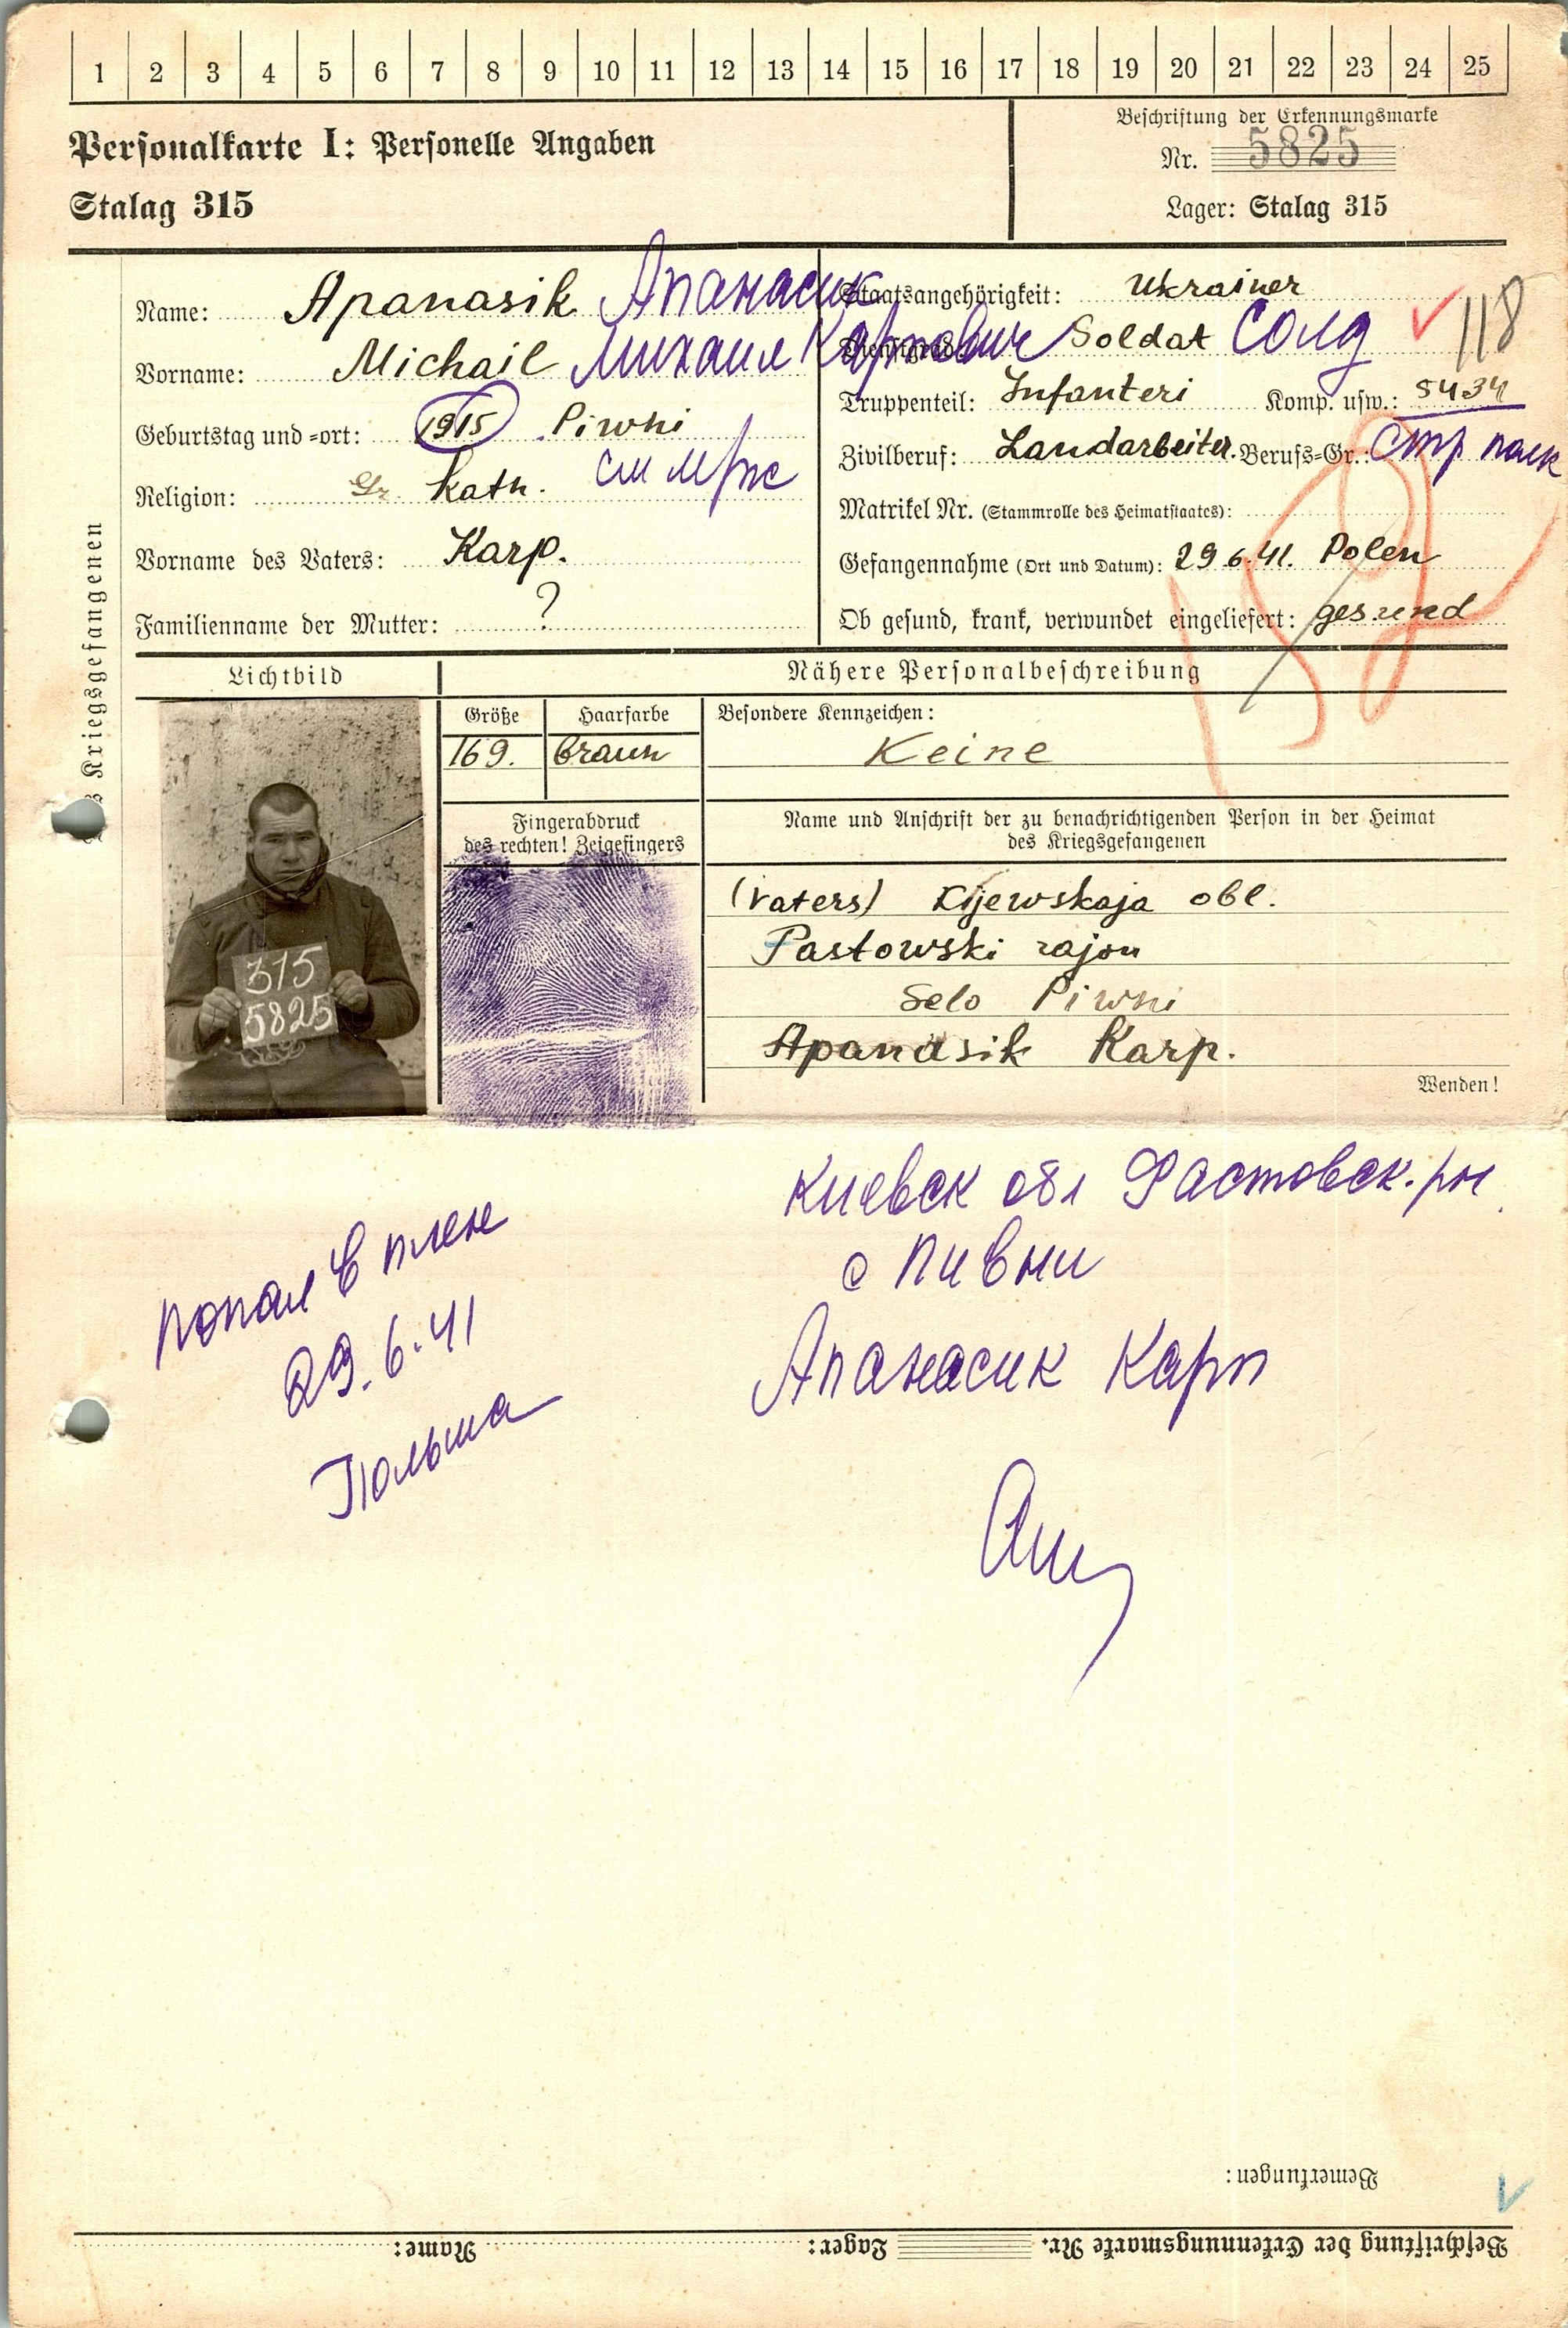 1 2 3 4 5 6 7 8 9 10 11 12 13 14 15 16 17 18 19 20 21 22 23 24 25
Personalkarte I: Personelle Angaben
Stalag 315
Beschriftung der Erkennungsmarke
Nr. 5825
Lager: Stalag 315
Kriegsgefangenen
Name: Apanasik Апанасик
Vorname: Michail Михаил Карпович
Geburtstag und =ort: 1915 Piwni
Religion: Gr. Kath. см
Vorname des Vaters: Karp.
Familienname der Mutter: ?
Staatsangehörigkeit: Ukrainer
Dienstgrad: Soldat Солд 118
Truppenteil: Infanteri Komp. usw.: 5434
Zivilberuf: Landarbeiter. Berufs=Gr.: стр полк
Matrikel Nr. (Stammrolle des Heimatstaates):
Gefangennahme (Ort und Datum): 29.6.41. Polen
Ob gesund, krank, verwundet eingeliefert: gesund
Lichtbild
Nähere Personalbeschreibung
Größe Haarfarbe
169. braun
Besondere Kennzeichen:
Keine
Fingerabdruck
des rechten! Zeigefingers
Name und Anschrift der zu benachrichtigenden Person in der Heimat
des Kriegsgefangenen
(Vaters) Kijewskaja obl.
Pastowski rajon
Selo Piwni
Apanasik Karp.
315
5825
Wenden!
попал в плен
29.6.41
Польша
Киевск обл Фастовск. рн
с Пивни
Апанасик Карп
Bemerkungen:
Beschriftung der Erkennungsmarke Nr. Lager: Name: